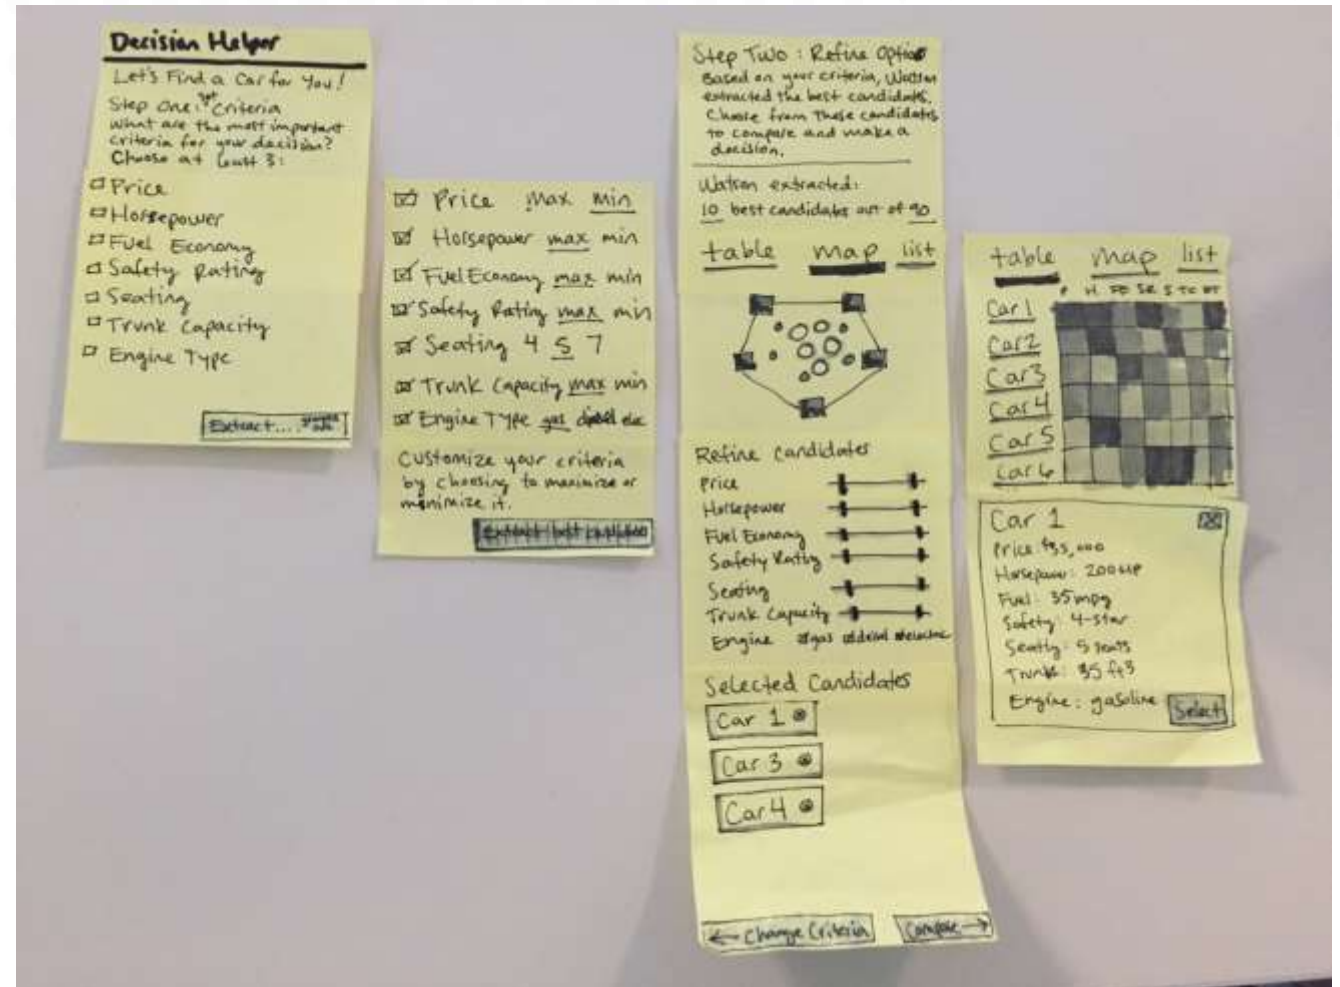 Decision Helper
Let's Find a Car for You!
Step One: Set Criteria
What are the most important
criteria for your decision?
Choose at least 3:
Price
Horsepower
Fuel Economy
Safety Rating
Seating
Trunk Capacity
Engine Type
Extract....
Price max min
Horsepower max min
Fuel Economy max min
Safety Rating max min
Seating 4 5 7
Trunk Capacity max min
Engine Type gas diesel elec
Customize your criteria
by choosing to maximize or
minimize it.
Extract best
Step Two: Refine Options
Based on your criteria, Watson
extracted the best candidates.
Choose from these candidates
to compare and make a
decision.
Watson extracted:
10 best candidates out of 90
table map list
Refine Candidates
Price
Horsepower
Fuel Economy
Safety Rating
Seating
Trunk Capacity
Engine gas diesel electric
Selected Candidates
Car 1
Car 3
Car 4
← Change Criteria
Compare →
table map list
P H FE SR S TC ET
Car 1
Car 2
Car 3
Car 4
Car 5
Car 6
Car 1
Price: $35,000
Horsepower: 200 HP
Fuel: 35 mpg
Safety: 4-star
Seating: 5 seats
Trunk: 35 ft3
Engine: gasoline
Select